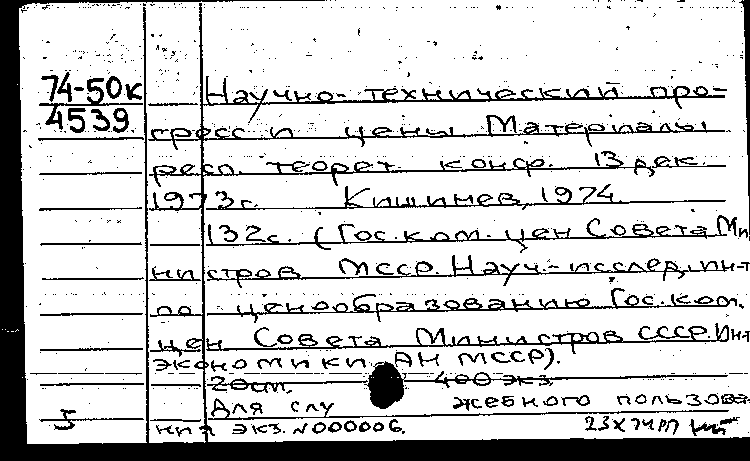 74-50к Научно-технический про=
4539 гресс и цены Материалы
респ. теорет. конф. 13 дек.
1973г. Кишинев, 1974.
132с. (Гос.ком. цен Совета Ми
нистров МССР. Науч.-исслед. ин-т
по ценообразованию Гос.ком.
цен Совета Министров СССР. Ин-т
экономики АН МССР).
20см. 400 экз.
Для служебного пользова
5 ния экз. N000006. 23 X 74